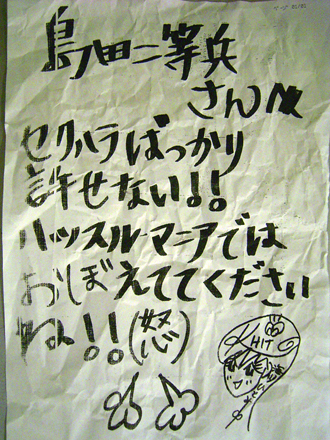 島田二等兵
さんへ
セクハラばっかり
許せない!!
ハッスルマニアでは
おぼえててください
ね!!(怒)
HIT